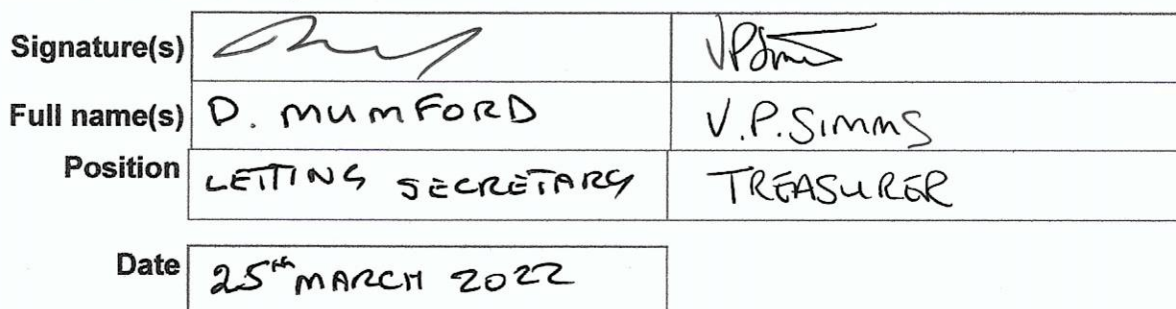 Signature(s) VPSimms
Full name(s) D. MUMFORD V.P.SIMMS
Position LETTING SECRETARY TREASURER
Date 25th MARCH 2022